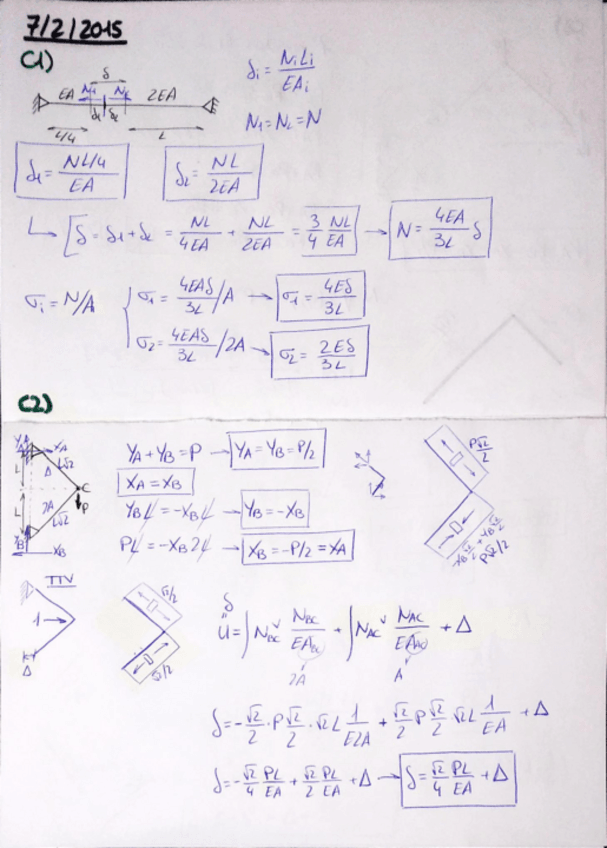 7/2/2015
C1)
δ
EA N₁ N₂ 2EA
δ₁ δ₂
L/4 L
δi = NiLi/EAi
N₁=N₂=N
δ₁ = NL/4/EA δ₂ = NL/2EA
↳ [δ = δ₁+δ₂ = NL/4EA + NL/2EA = 3/4 NL/EA → N = 4EA/3L δ
σi = N/Ai { σ₁ = 4EAδ/3L/A → σ₁ = 4Eδ/3L
σ₂ = 4EAδ/3L/2A → σ₂ = 2Eδ/3L
C2)
YA XA
L A L√2
C
L 2A L√2 P
YB
XB
YA+YB=P → YA=YB=P/2
XA=XB
YBL=-XBL → YB=-XB
PL=-XB2L → XB=-P/2=XA
P√2/2
-XB√2/2 + YB√2/2
P√2/2
TTV
1→
Δ
√2/2
√2/2
δ
ü = ∫NBCᵛ NBC/EABC + ∫NACᵛ NAC/EAAC + Δ
2A A
δ=-√2/2·P√2/2·√2L 1/E2A + √2/2 P√2/2 √2L 1/EA + Δ
δ=-√2/4 PL/EA + √2/2 PL/EA + Δ → δ=√2/4 PL/EA + Δ